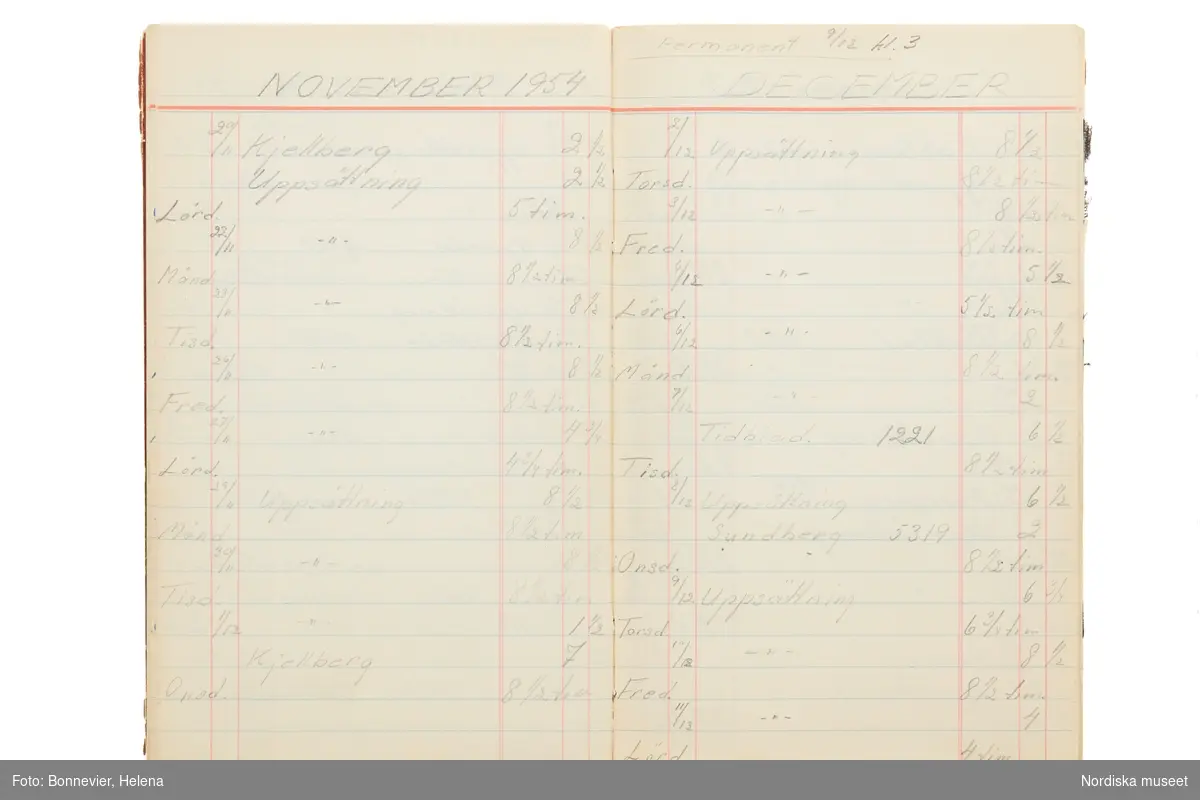 NOVEMBER 1954
20/11 Kjellberg 2 1/2
Uppsättning 2 1/2
Lörd. 5 tim.
22/11 -"- 8 1/2
Månd. 8 1/2 tim
23/11 -"- 8 1/2
Tisd. 8 1/2 tim.
26/11 -"- 8 1/2
Fred. 8 1/2 tim.
27/11 -"- 4 3/4
Lörd. 4 3/4 tim.
29/11 Uppsättning 8 1/2
Månd 8 1/2 tim
30/11 -"- 8
Tisd. 8 1/2 tim
1/12 -"- 1 1/2
Kjellberg 7
Onsd. 8 1/2 tim
Permanent 9/12 kl. 3
DECEMBER
2/12 Uppsättning 8 1/2
Torsd. 8 1/2 tim
3/12 -"- 8 1/2 tim
Fred. 8 1/2 tim.
/12 -"- 5 1/2
Lörd. 5 1/2 tim
6/12 -"- 8 1/2
Månd. 8 1/2 tim.
7/12 -"- 2
Tidblad. 1221 6 1/2
Tisd. 8 1/2 tim
8/12 Uppsättning 6 1/2
Sundberg 5319 2
Onsd. 8 1/2 tim
9/12 Uppsättning 6 3/4
Torsd. 6 3/4 tim
/12 -"- 8 1/2
Fred. 8 1/2 tim.
11/12 -"- 4
Lörd. 4 tim
Foto: Bonnevier, Helena
Nordiska museet